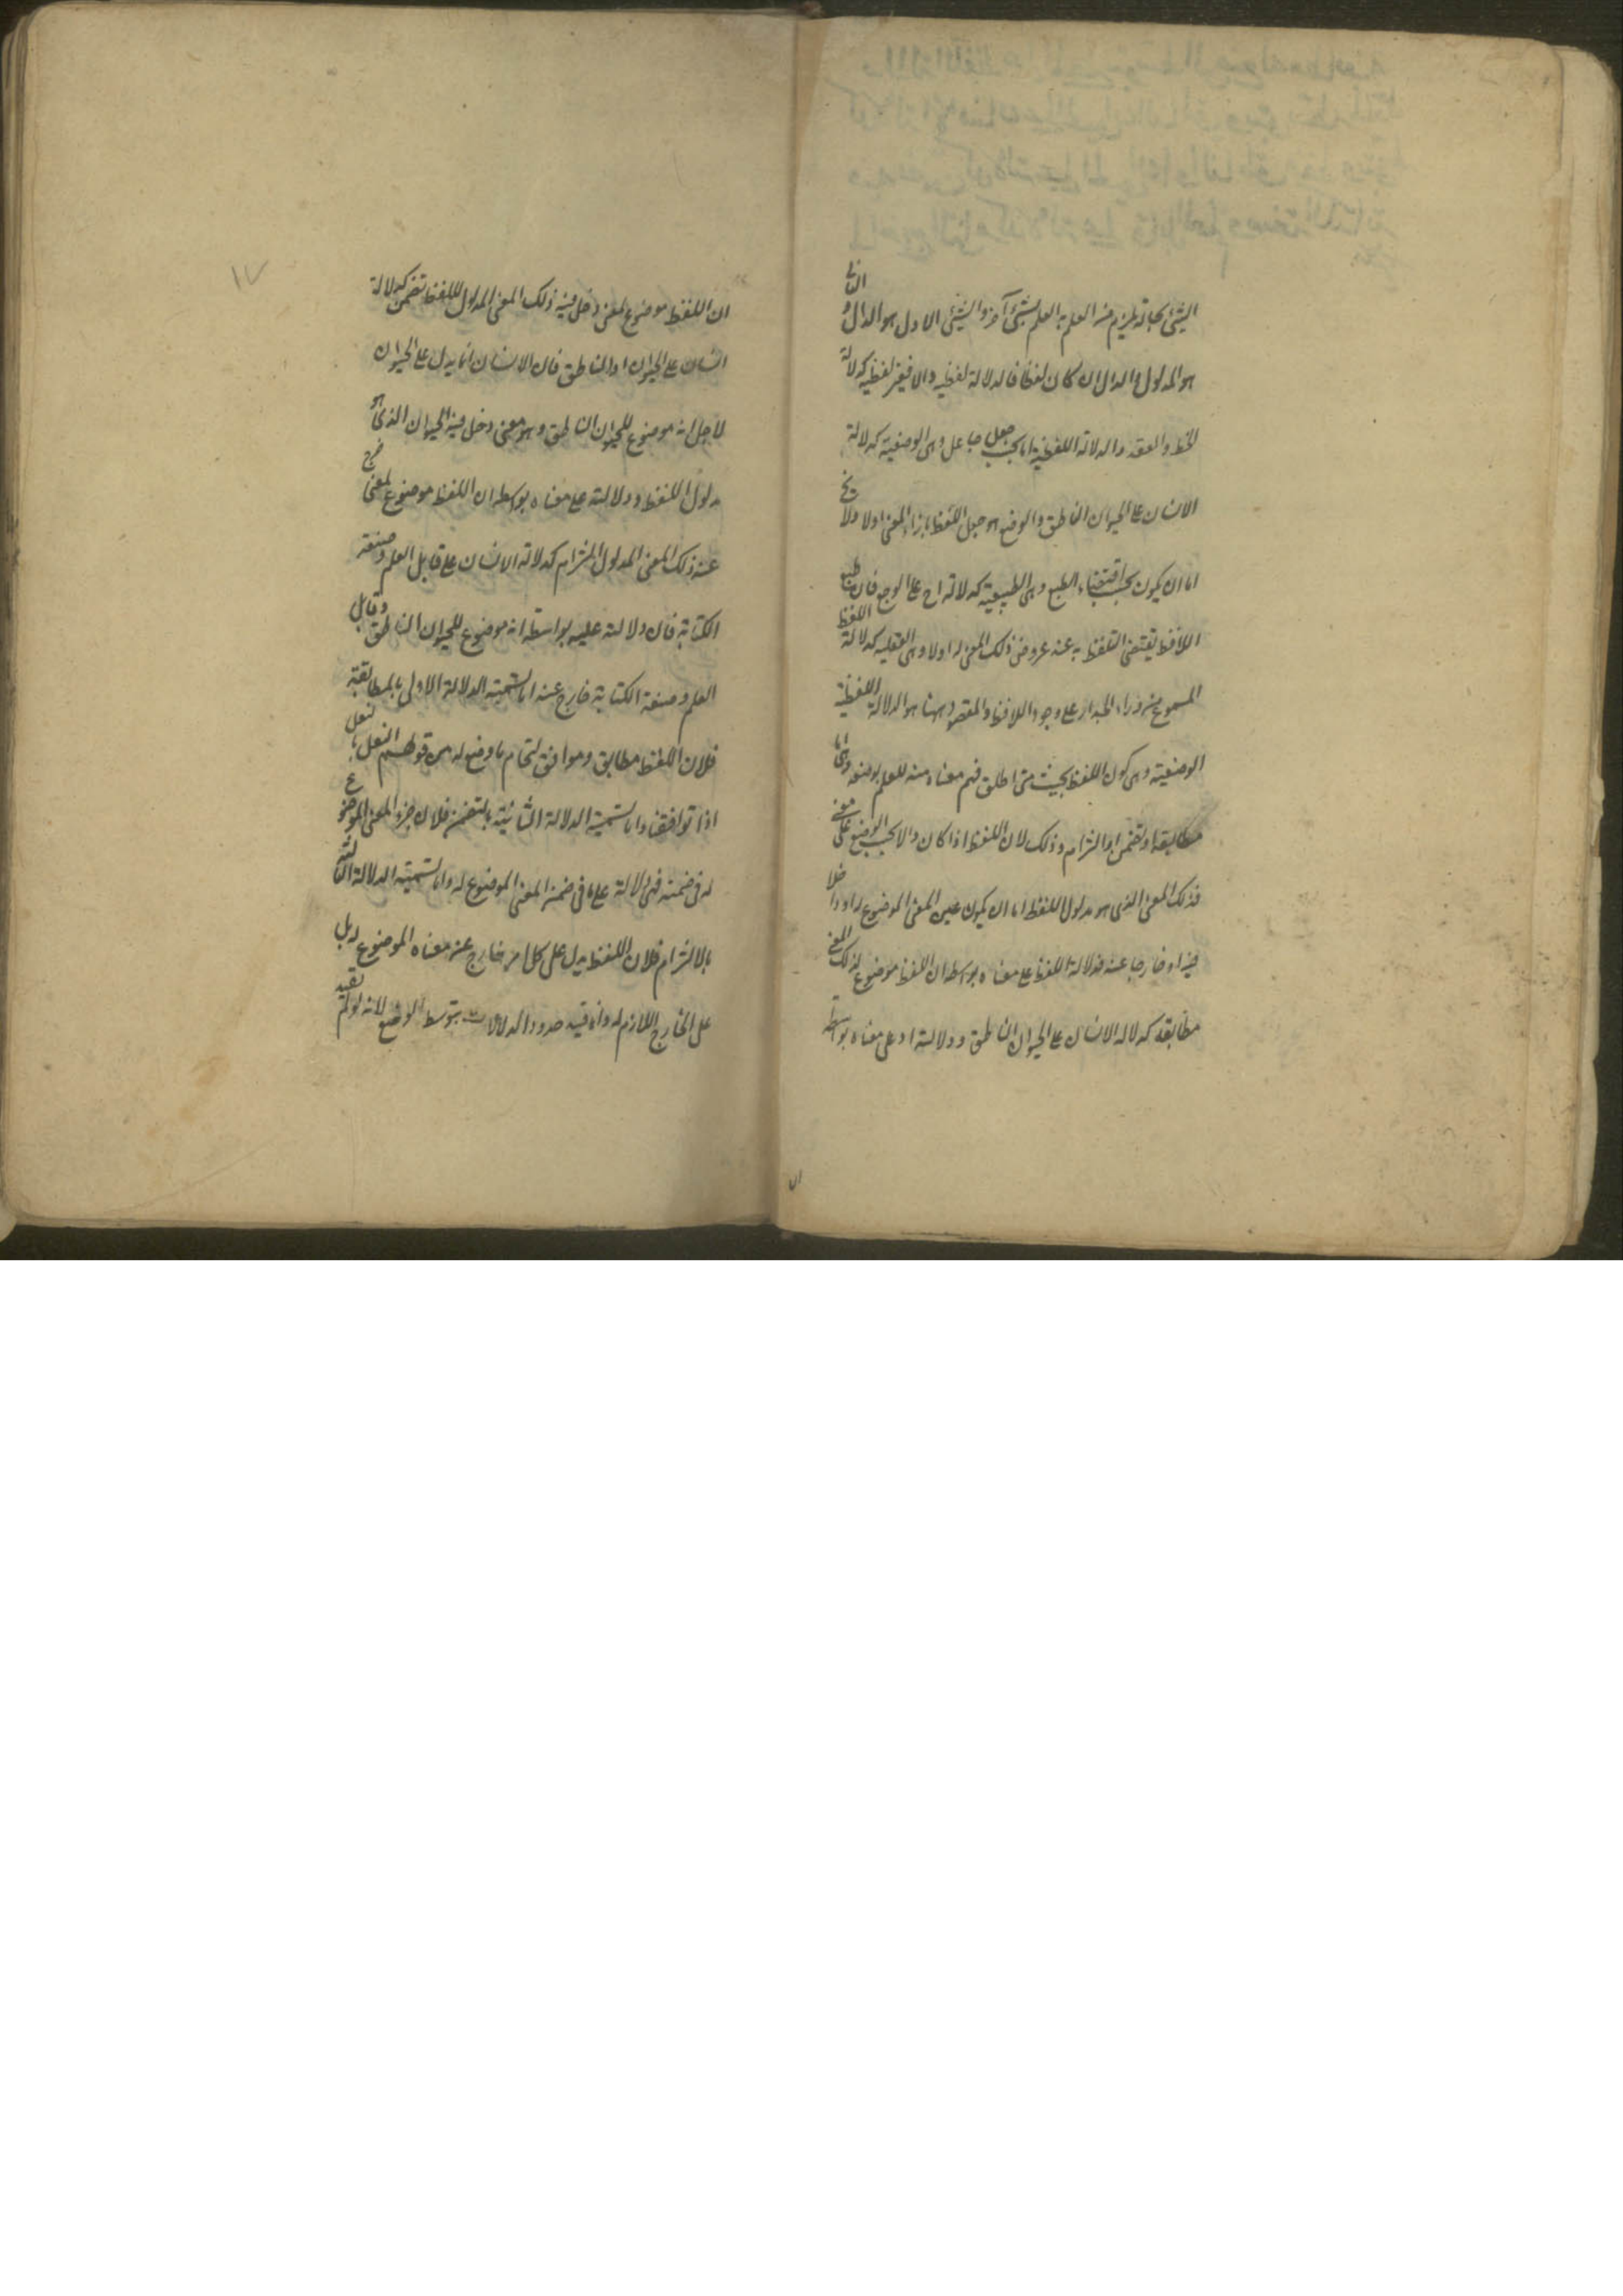 الشيئ بحالة يلزم من العلم به العلم بشيئ آخر والشيئ الاول هو الدال و الثانى
هو المدلول والدال ان كان لفظا فالدلالة لفظيه والا فغير لفظيه كدلالة
الخط والعقد والدلالة اللفظية اما بحسب جعل جاعل وهى الوضعية كدلالة
الانسان على الحيوان الناطق والوضع هو جعل اللفظ بازاء المعنى اولا ولا يخ
اما ان يكون بحسب اقتضاء الطبع وهى الطبيعية كدلالة اح على الوجع فان طبع
اللافظ يقتضى التلفظ به عند عروض ذلك المعنى له اولا وهى العقليه كدلالة اللفظ
المسموع من وراء الجدار على وجود اللافظ والمقصود ههنا هو الدلالة اللفظية
الوضعية وهى كون اللفظ بحيث متى اطلق فهم معناه منه للعلم بوضعه وهى اما
مطابقة او تضمن او التزام وذلك لان اللفظ اذا كان دالا بحسب الوضع على معنى
فذلك المعنى الذى هو مدلول اللفظ اما ان يكون عين المعنى الموضوع له او داخلا
فيه او خارجا عنه فدلالة اللفظ على معناه بواسطه ان اللفظ موضوع لذلك المعنى
مطابقه كدلاله الانسان على الحيوان الناطق ودلالته على معناه بواسطه
ان
١٧
ان اللفظ موضوع لمعنى دخل فيه ذلك المعنى المدلول للفظ تضمن كدلالة
انسان على الحيوان او الناطق فان الانسان انما يدل على الحيوان
لاجل انه موضوع للحيوان الناطق وهو معنى دخل فيه الحيوان الذى هو
مدلول اللفظ ودلالته على معناه بواسطه ان اللفظ موضوع لمعنى خرج
عنه ذلك المعنى المدلول التزام كدلالة الانسان على قابل العلم وصنعة
الكتابة فان دلالته عليه بواسطة انه موضوع للحيوان الناطق وقابل
العلم وصنعة الكتابة خارج عنه اما تسمية الدلالة الاولى بالمطابقة
فلان اللفظ مطابق وموافق لتمام ما وضع له من قولهم النعل بالنعل
اذا توافقتا واما تسمية الدلالة الثانية بالتضمن فلان جزء المعنى الموضوع
له فى ضمنه فهى دلالة على ما فى ضمن المعنى الموضوع له واما تسمية الدلالة الثالثة
بالالتزام فلان اللفظ يدل على كل امر خارج عن معناه الموضوع له بل
على الخارج اللازم له وانما قيد حدود الدلالات بتوسط الوضع لانه لو لم يقيد